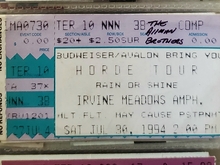 MA0730 TER 10 NNN 38 COMP
THE ALLMAN BROTHERS
$ 0.00
BUDWEISER/AVALON BRING YOU
TER 10 HORDE TOUR
37X RAIN OR SHINE
NNN 38 IRVINE MEADOWS AMPH.
MLT FLT MAY CAUSE PSTRNM
SAT JUL 30, 1994 2:00 PM